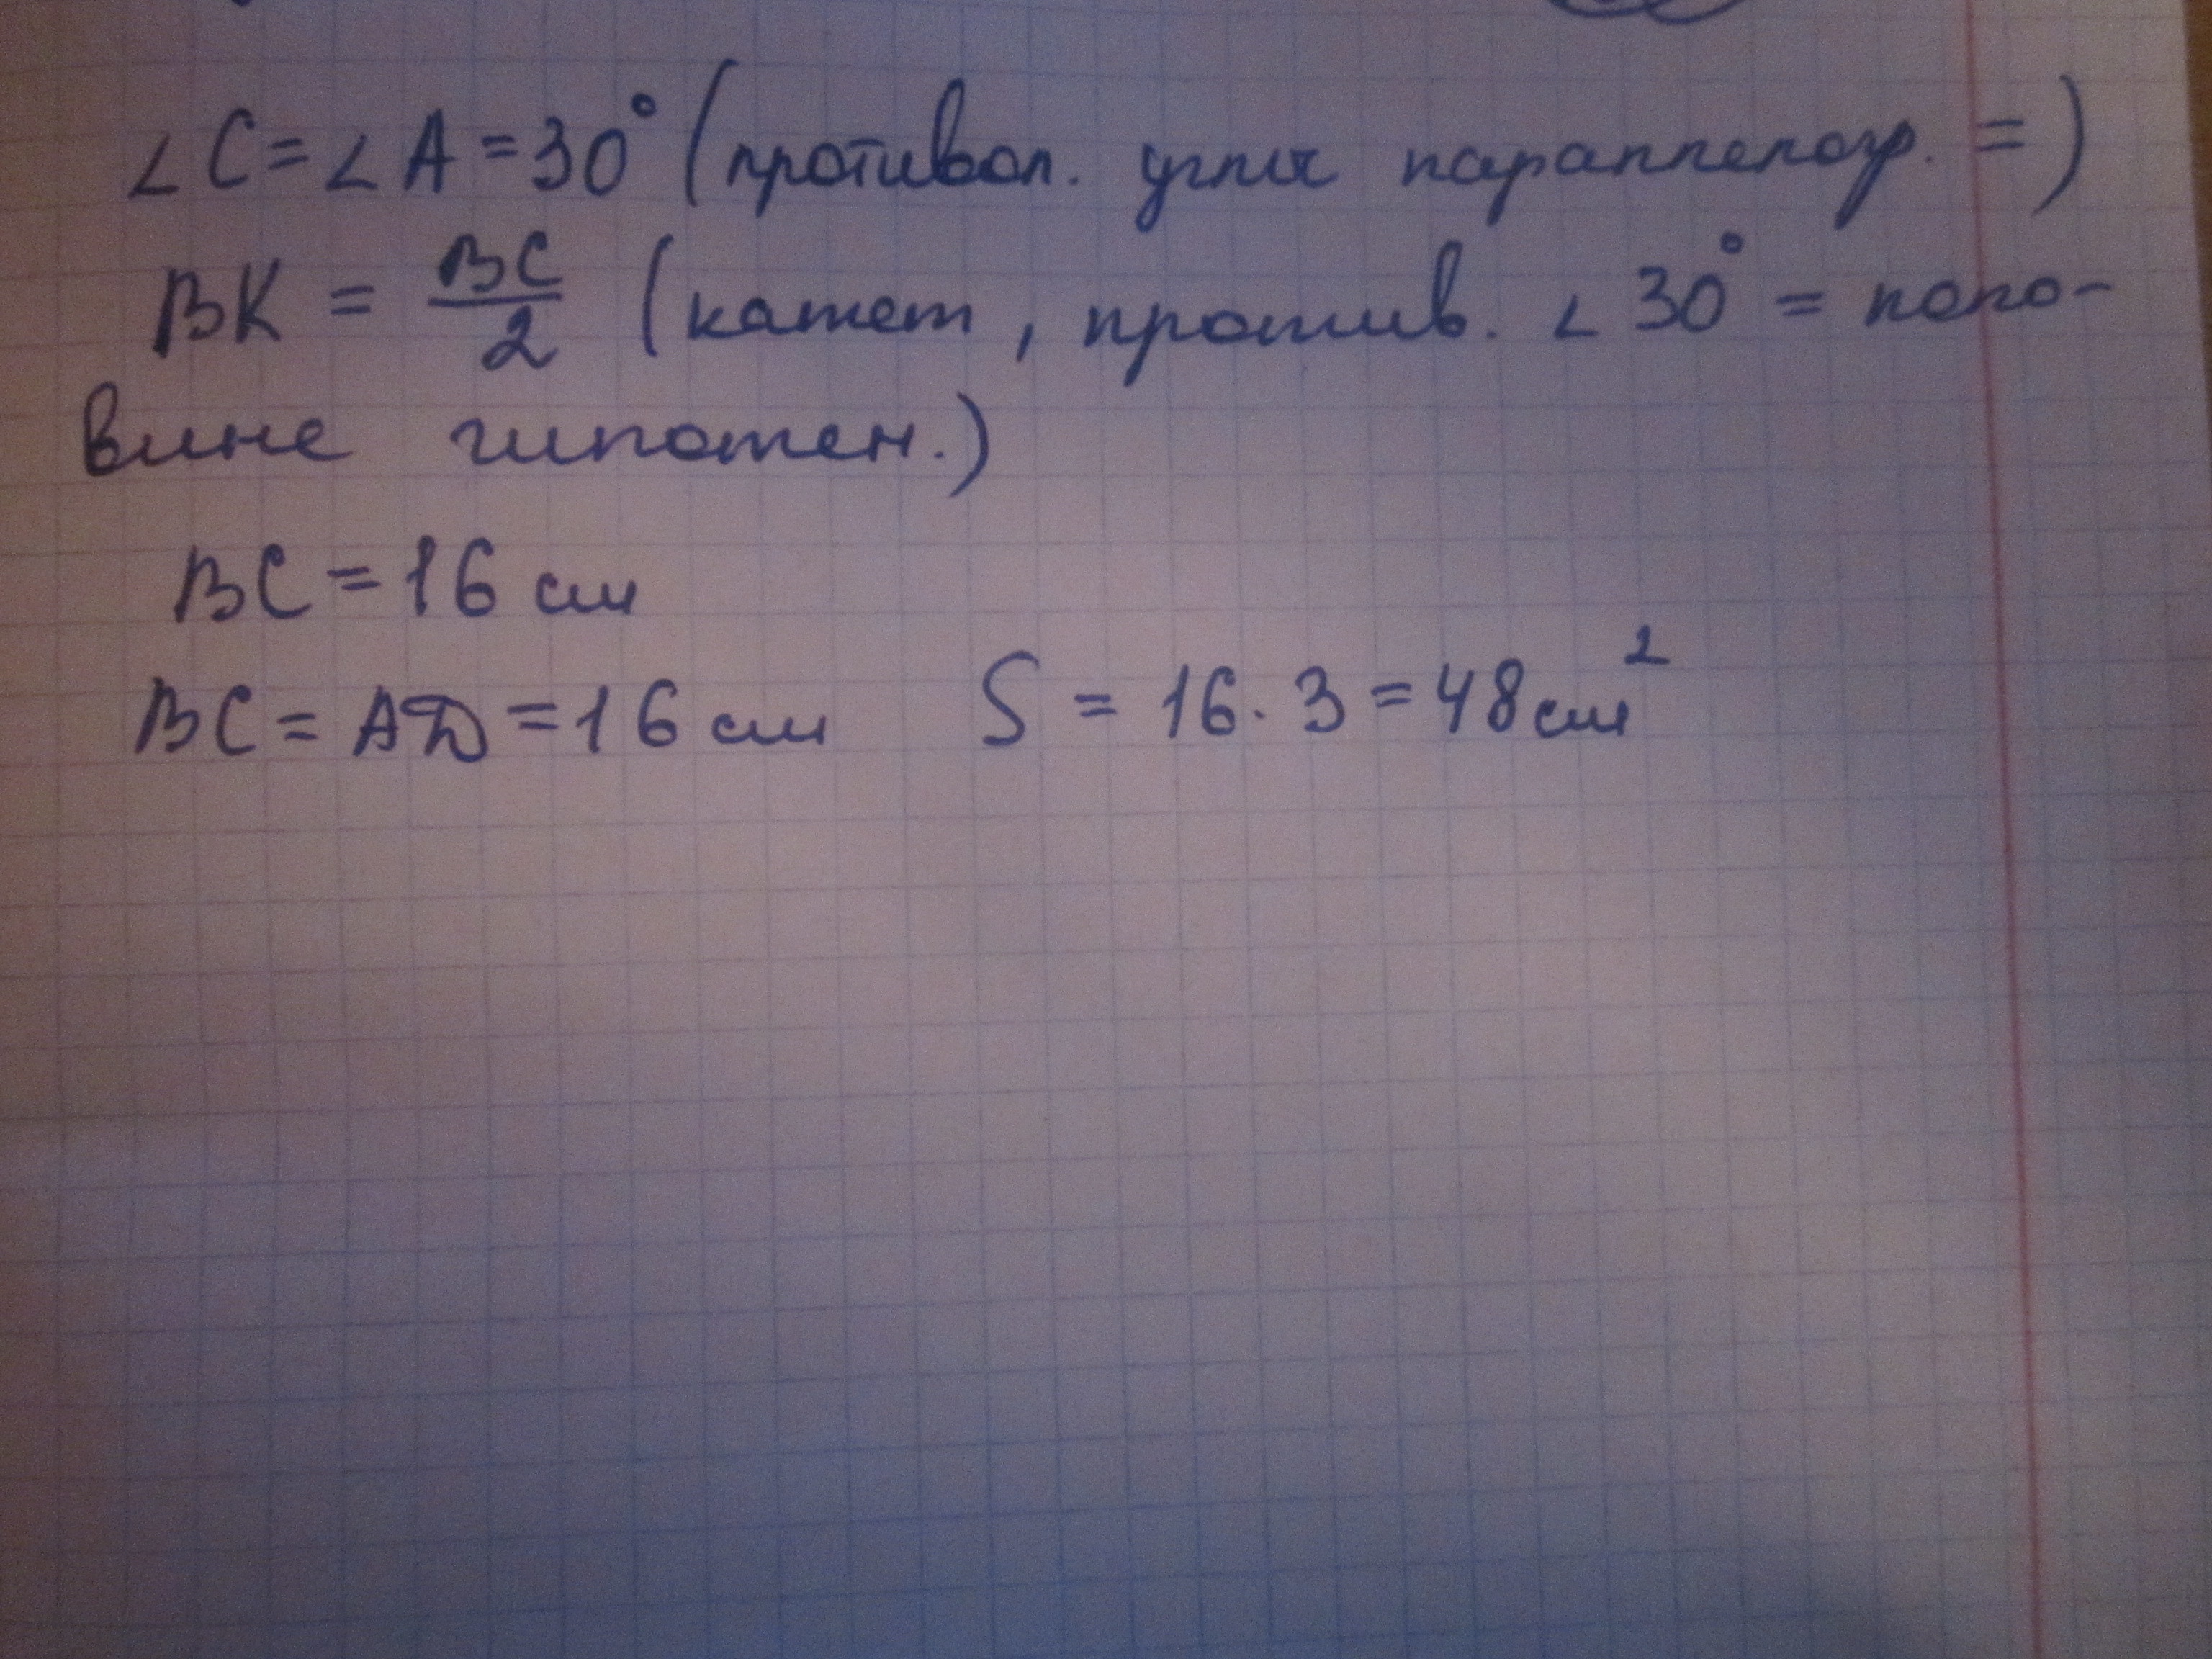 ∠C=∠A=30° (противоп. углы параллелогр. =)
BK = BC/2 (катет, против. ∠30° = поло-
вине гипотен.)
BC=16 см
BC=AD=16 см S = 16·3=48см²